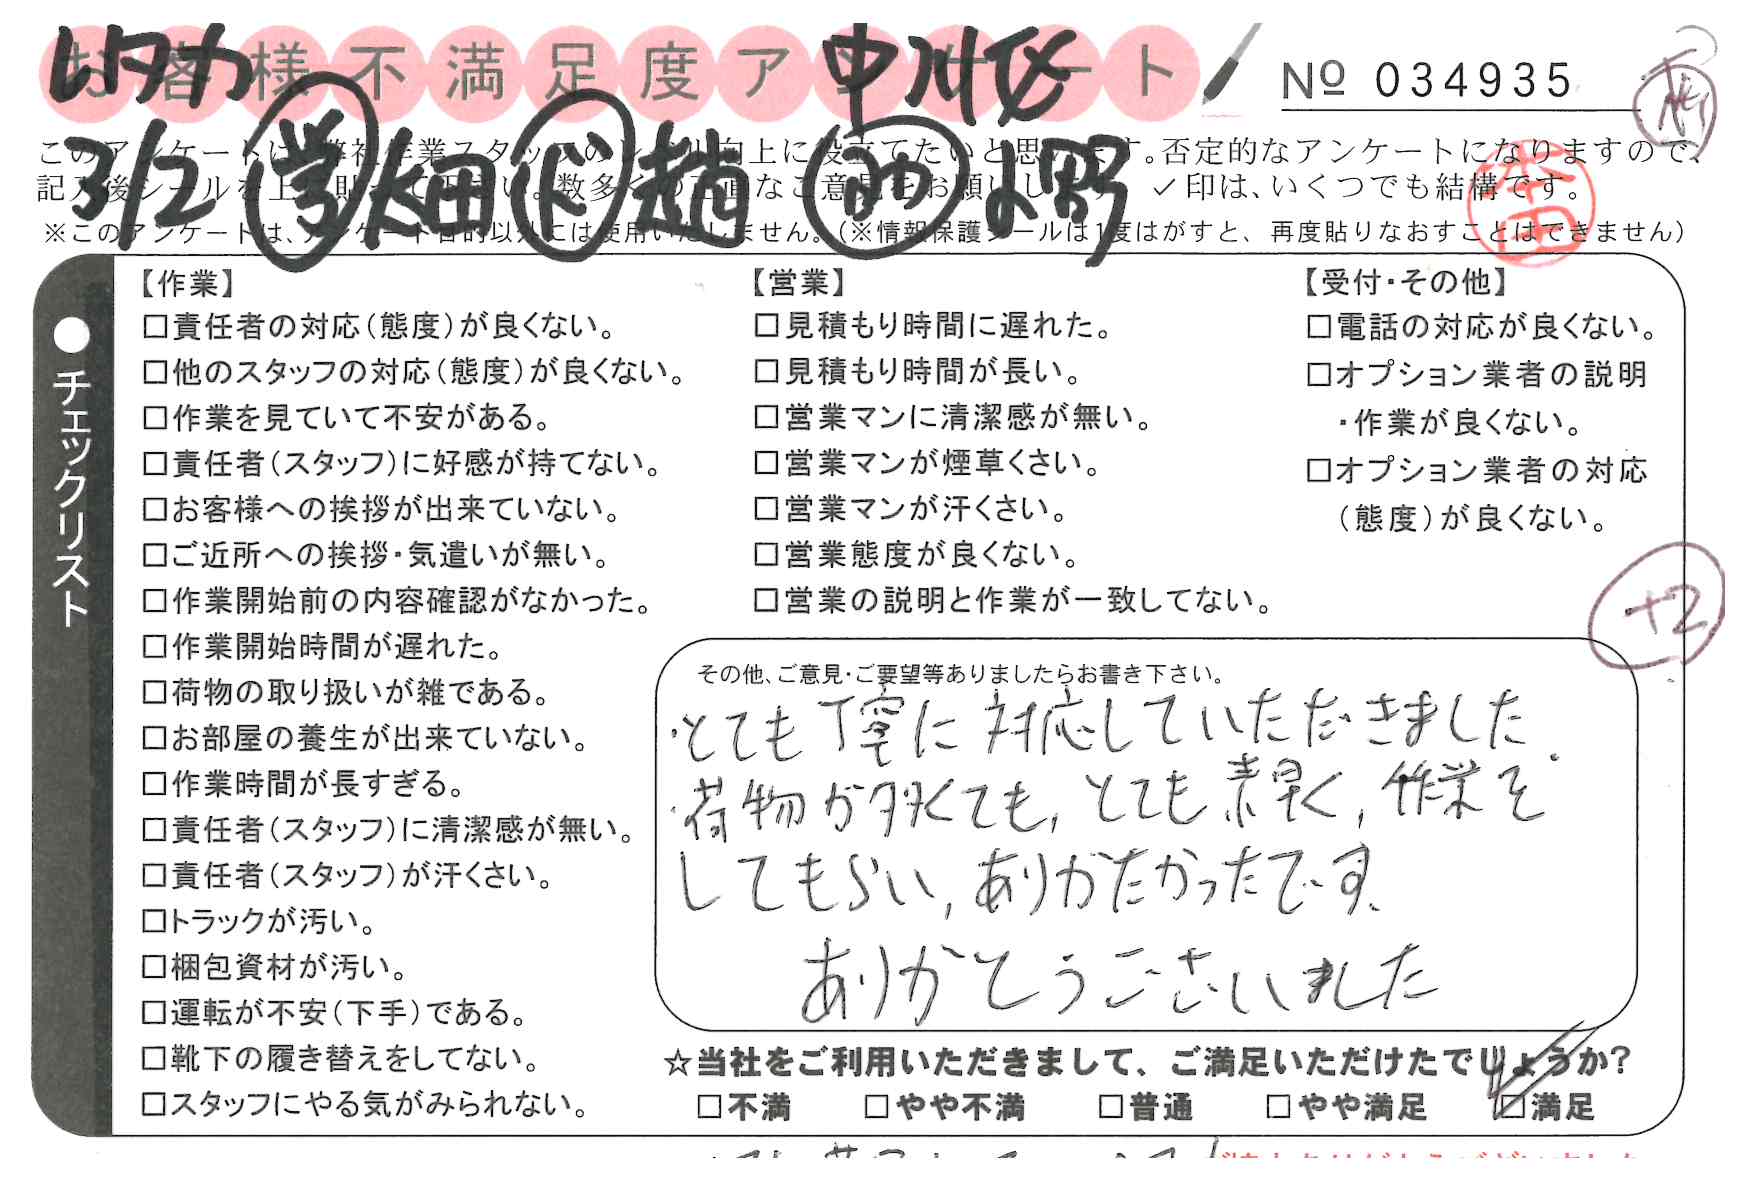 お客様不満足度アンケート
№ 034935
3/2
このアンケートは、弊社作業スタッフのレベル向上に役立てたいと思います。否定的なアンケートになりますので、
記入後シールを上に貼って下さい。数多くの正直なご意見をお願いします。✓印は、いくつでも結構です。
※このアンケートは、アンケート目的以外には使用いたしません。(※情報保護シールは1度はがすと、再度貼りなおすことはできません)
●チェックリスト
【作業】
□責任者の対応(態度)が良くない。
□他のスタッフの対応(態度)が良くない。
□作業を見ていて不安がある。
□責任者(スタッフ)に好感が持てない。
□お客様への挨拶が出来ていない。
□ご近所への挨拶・気遣いが無い。
□作業開始前の内容確認がなかった。
□作業開始時間が遅れた。
□荷物の取り扱いが雑である。
□お部屋の養生が出来ていない。
□作業時間が長すぎる。
□責任者(スタッフ)に清潔感が無い。
□責任者(スタッフ)が汗くさい。
□トラックが汚い。
□梱包資材が汚い。
□運転が不安(下手)である。
□靴下の履き替えをしてない。
□スタッフにやる気がみられない。
【営業】
□見積もり時間に遅れた。
□見積もり時間が長い。
□営業マンに清潔感が無い。
□営業マンが煙草くさい。
□営業マンが汗くさい。
□営業態度が良くない。
□営業の説明と作業が一致してない。
【受付・その他】
□電話の対応が良くない。
□オプション業者の説明
・作業が良くない。
□オプション業者の対応
(態度)が良くない。
+2
その他、ご意見・ご要望等ありましたらお書き下さい。
とても丁寧に対応していただきました
荷物が多くても、とても素早く、作業を
してもらい、ありがたかったです。
ありがとうございました
☆当社をご利用いただきまして、ご満足いただけたでしょうか?
□不満 □やや不満 □普通 □やや満足 □満足